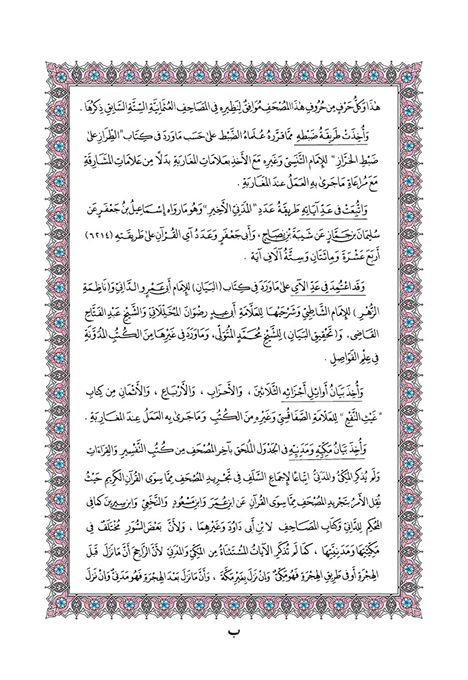 هٰذَا وَكُلُّ حَرْفٍ مِنْ حُرُوفِ هٰذَا المُصْحَفِ مُوَافِقٌ لِنَظِيرِهِ فِي المَصَاحِفِ العُثْمَانِيَّةِ السِّتَّةِ السَّابِقِ ذِكْرُهَا .
وَأُخِذَتْ طَرِيقَةُ ضَبْطِهِ مِمَّا قَرَّرَهُ عُلَمَاءُ الضَّبْطِ عَلَى حَسَبِ مَا وَرَدَ فِي كِتَابِ "الطِّرَازِ عَلَى
ضَبْطِ الخَرَّازِ" لِلإِمَامِ التَّنَسِيِّ وَغَيْرِهِ مَعَ الأَخْذِ بِعَلَامَاتِ المَغَارِبَةِ بَدَلًا مِنْ عَلَامَاتِ المَشَارِقَةِ
مَعَ مُرَاعَاةِ مَا جَرَىٰ بِهِ العَمَلُ عِنْدَ المَغَارِبَةِ .
وَاتُّبِعَتْ فِي عَدِّ آيَاتِهِ طَرِيقَةُ عَدَدِ "المَدَنِيِّ الأَخِيرِ" وَهُوَ مَا رَوَاهُ إِسْمَاعِيلُ بْنُ جَعْفَرٍ عَنْ
سُلَيْمَانَ بْنِ جَمَّازٍ عَنْ شَيْبَةَ بْنِ نِصَاحٍ ، وَأَبِي جَعْفَرٍ وَعَدَدُ آيِ القُرْآنِ عَلَى طَرِيقَتِهِ (٦٢١٤)
أَرْبَعَ عَشْرَةَ وَمِائَتَانِ وَسِتَّةُ آلَافِ آيَة .
وَقَدِ اعْتُمِدَ فِي عَدِّ الآيِ عَلَى مَا وَرَدَ فِي كِتَابِ (البَيَانِ) لِلإِمَامِ أَبِي عَمْرٍو الدَّانِي وَ(نَاظِمَةِ
الزُّهْرِ) لِلإِمَامِ الشَّاطِبِيِّ وَشَرْحَيْهَا لِلعَلَّامَةِ أَبِي عِيدٍ رِضْوَانَ المُخَلِّلَاتِيِّ وَالشَّيْخِ عَبْدِ الفَتَّاحِ
القَاضِي . وَ(تَحْقِيقِ البَيَانِ) لِلشَّيْخِ مُحَمَّدٍ المُتَوَلِّي ، وَمَا وَرَدَ فِي غَيْرِهَا مِنَ الكُتُبِ المُدَوَّنَةِ
فِي عِلْمِ الفَوَاصِلِ .
وَأُخِذَ بَيَانُ أَوَائِلِ أَجْزَائِهِ الثَّلَاثِينَ ، وَالأَحْزَابِ ، وَالأَرْبَاعِ ، وَالأَثْمَانِ مِنْ كِتَابِ
"غَيْثِ النَّفْعِ" لِلعَلَّامَةِ الصَّفَاقُسِيِّ وَغَيْرِهِ مِنَ الكُتُبِ وَمَا جَرَىٰ بِهِ العَمَلُ عِنْدَ المَغَارِبَةِ .
وَأُخِذَ بَيَانُ مَكِّيِّهِ وَمَدَنِيِّهِ فِي الجَدْوَلِ المُلْحَقِ بِآخِرِ المُصْحَفِ مِنْ كُتُبِ التَّفْسِيرِ وَالقِرَاءَاتِ
وَلَمْ يُذْكَرِ المَكِّيُّ وَالمَدَنِيُّ اتِّبَاعًا لِإِجْمَاعِ السَّلَفِ فِي تَجْرِيدِ المُصْحَفِ مِمَّا سِوَى القُرْآنِ الكَرِيمِ حَيْثُ
نُقِلَ الأَمْرُ بِتَجْرِيدِ المُصْحَفِ مِمَّا سِوَى القُرْآنِ عَنِ ابْنِ عُمَرَ وَابْنِ مَسْعُودٍ وَالنَّخَعِيِّ وَابْنِ سِيرِينَ كَمَا فِي
المُحْكَمِ لِلدَّانِيِّ وَكِتَابِ المَصَاحِفِ لِابْنِ أَبِي دَاوُدَ وَغَيْرِهِمَا ، وَلِأَنَّ بَعْضَ السُّوَرِ مُخْتَلَفٌ فِي
مَكِّيَّتِهَا وَمَدَنِيَّتِهَا ، كَمَا لَمْ تُذْكَرِ الآيَاتُ المُسْتَثْنَاةُ مِنَ المَكِّيِّ وَالمَدَنِيِّ لِأَنَّ الرَّاجِحَ أَنَّ مَا نَزَلَ قَبْلَ
الهِجْرَةِ أَوْ فِي طَرِيقِ الهِجْرَةِ فَهُوَ مَكِّيٌّ وَإِنْ نَزَلَ بِغَيْرِ مَكَّةَ ، وَأَنَّ مَا نَزَلَ بَعْدَ الهِجْرَةِ فَهُوَ مَدَنِيٌّ وَإِنْ نَزَلَ
ب